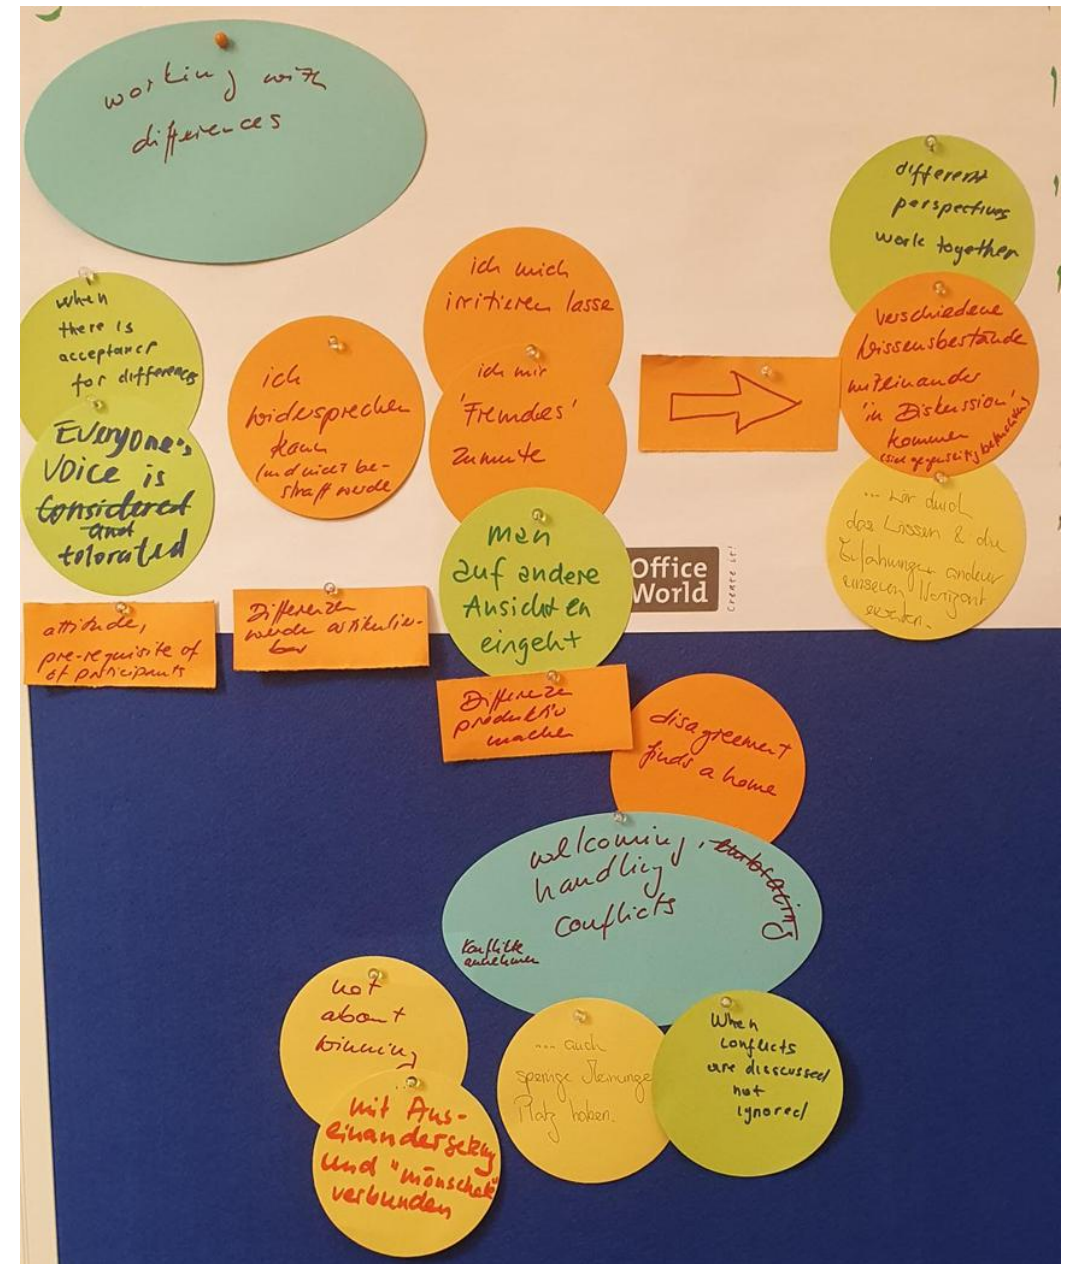 working with
differences
when
there is
acceptance
for differences
Everyone's
voice is
considered
and
tolorated
attitude,
pre-requisite of
of participants
ich
widersprechen
kann
(und nicht be-
straft werde
Differenzen
werden artikulier-
bar
ich mich
irritieren lasse
ich mir
'Fremdes'
zumute
man
auf andere
Ansichten
eingeht
Differenzen
produktiv
machen
different
perspectives
work together
verschiedene
Wissensbestände
miteinander
'in Diskussion'
kommen
(sich gegenseitig befruchten)
... wir durch
das Wissen & die
Erfahrungen anderer
unseren Horizont
erweitern.
Office
World
Create it!
disagreement
finds a home
welcoming, embracing
handling
conflicts
Konflikte
annehmen
not
about
winning
...
mit Aus-
einandersetzung
und "mönschele"
verbunden
... auch
sperrige Meinungen
Platz haben.
When
conflicts
are disscussed
not
ignored